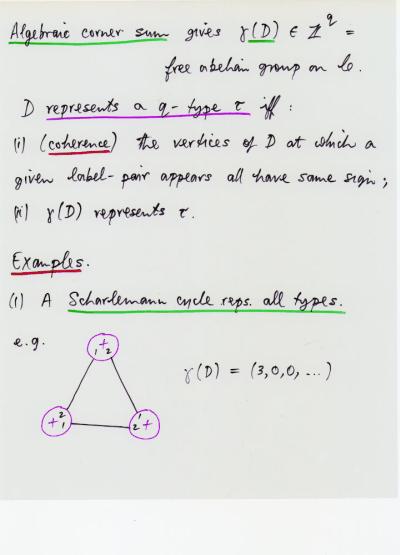 Algebraic corner sum gives γ(D) ∈ ℤ^q =
free abelian group on C.
D represents a q-type τ iff :
(i) (coherence) the vertices of D at which a
given label-pair appears all have same sign ;
(ii) γ(D) represents τ.
Examples.
(1) A Scharlemann cycle reps. all types.
e.g.
+
1 2
γ(D) = (3,0,0, ...)
+ 2
1
1
2 +